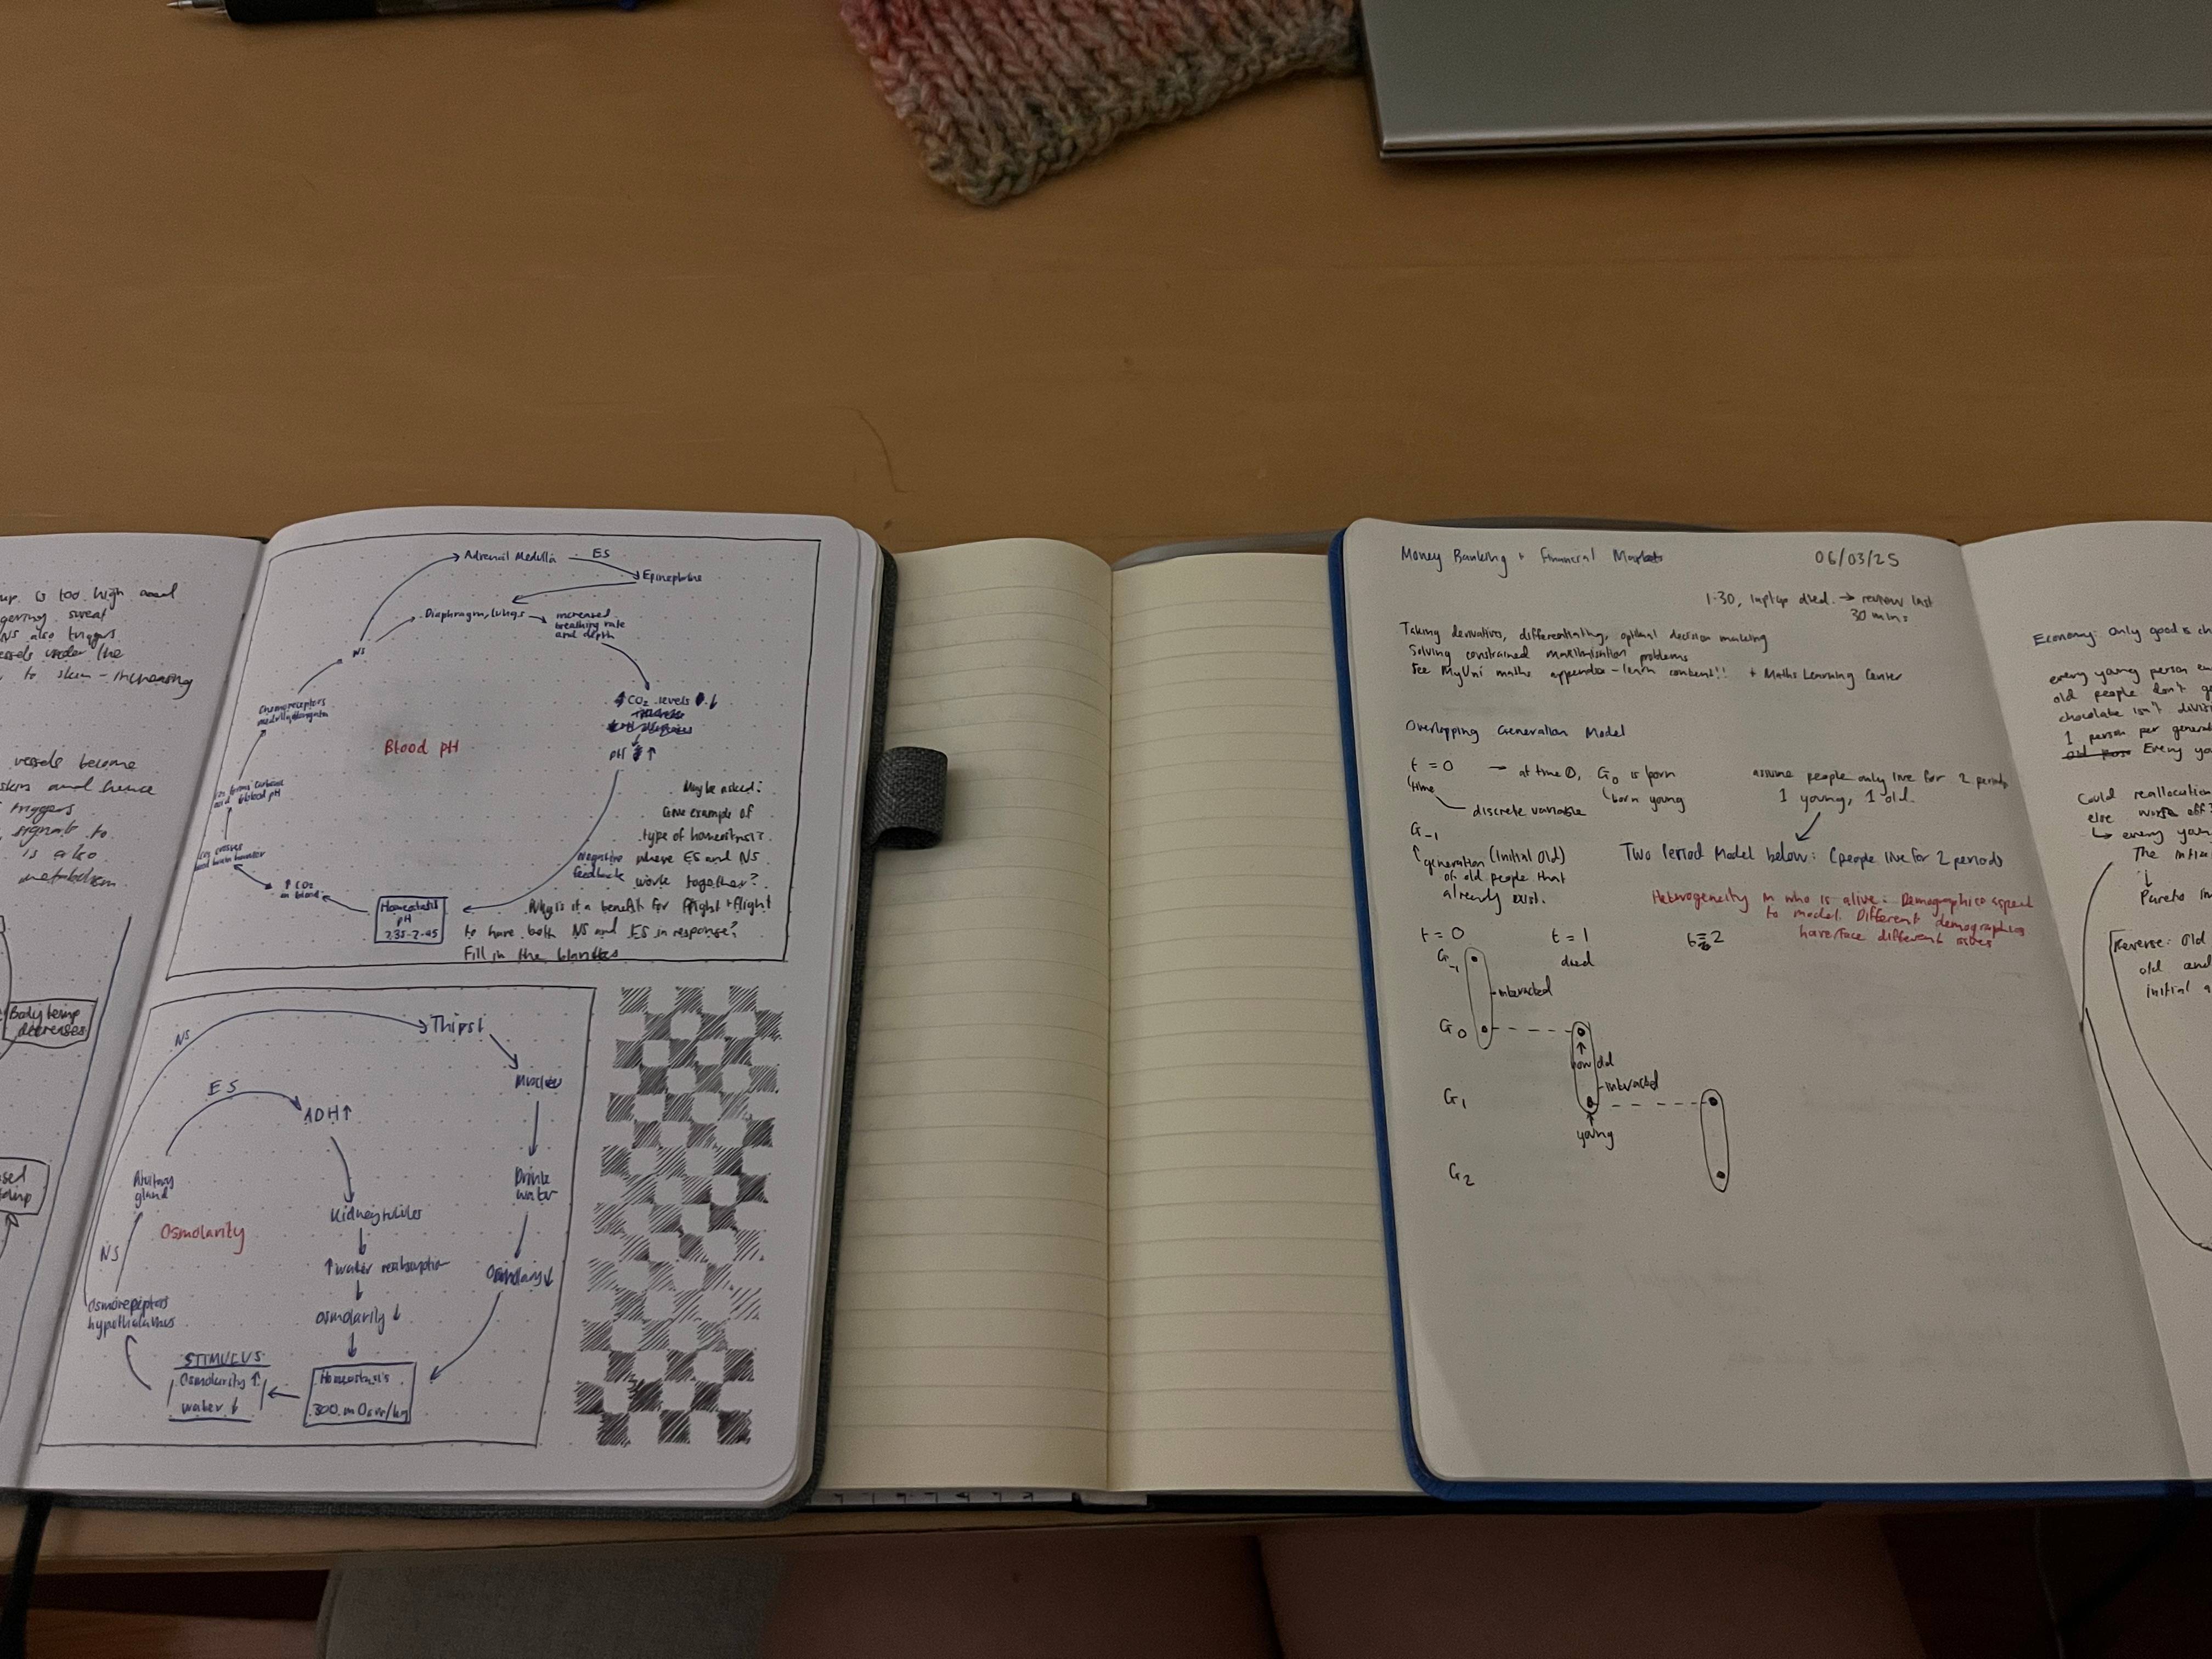 is too high and
sweat
NS also
under the
to skin - increasing
vessels become
skin and hence
triggers
signals to
is also
metabolism
Body temp
decreases
Adrenal Medulla
ES
Epinephrine
Diaphragm, lungs
increased
breathing rate
and depth
NS
CO₂ levels ↓
pH ↑
Chemoreceptors
medulla oblongata
Blood pH
blood pH
↑ CO₂
in blood
Homeostasis
pH
7.35-7.45
Negative
feedback
Maybe asked:
Give example of
type of homeostasis
where ES and NS
work together?
Why is it a benefit for fright + flight
to have both NS and ES in response?
Fill in the blankes
NS
Thirst
ES
ADH↑
Muscles
Pituitary
gland
Kidney tubules
Drink
water
Osmolarity
NS
↑ water reabsorption
Osmolarity↓
Osmoreceptors
hypothalamus
Osmolarity ↓
STIMULUS
Osmolarity ↑
water ↓
Homeostasis
300 mOsm/kg
Money Banking + Financial Markets
06/03/25
1-30, laptop died. → review last
30 mins
Taking derivatives, differentiating, optimal decision making
Solving constrained maximisation problems
See MyUni maths appendix - learn content!! + Maths Learning Center
Overlapping Generation Model
t = 0 → at time 0, G₀ is born
time
born young
discrete variable
assume people only live for 2 periods
1 young, 1 old.
G₋₁
generation (Initial Old)
of old people that
already exist.
Two Period Model below: (people live for 2 periods)
Heterogeneity in who is alive. Demographic aspect
to model. Different demographics
have/face different
t = 0
t = 1
t = 2
G₋₁
died
interacted
G₀
now old
interacted
G₁
young
G₂
Economy: Only good is
every young person
old people don't
chocolate isn't
1 person per
Every
Could reallocation
else worse off?
↳ every
The
Pareto
Reverse: Old
old and
initial